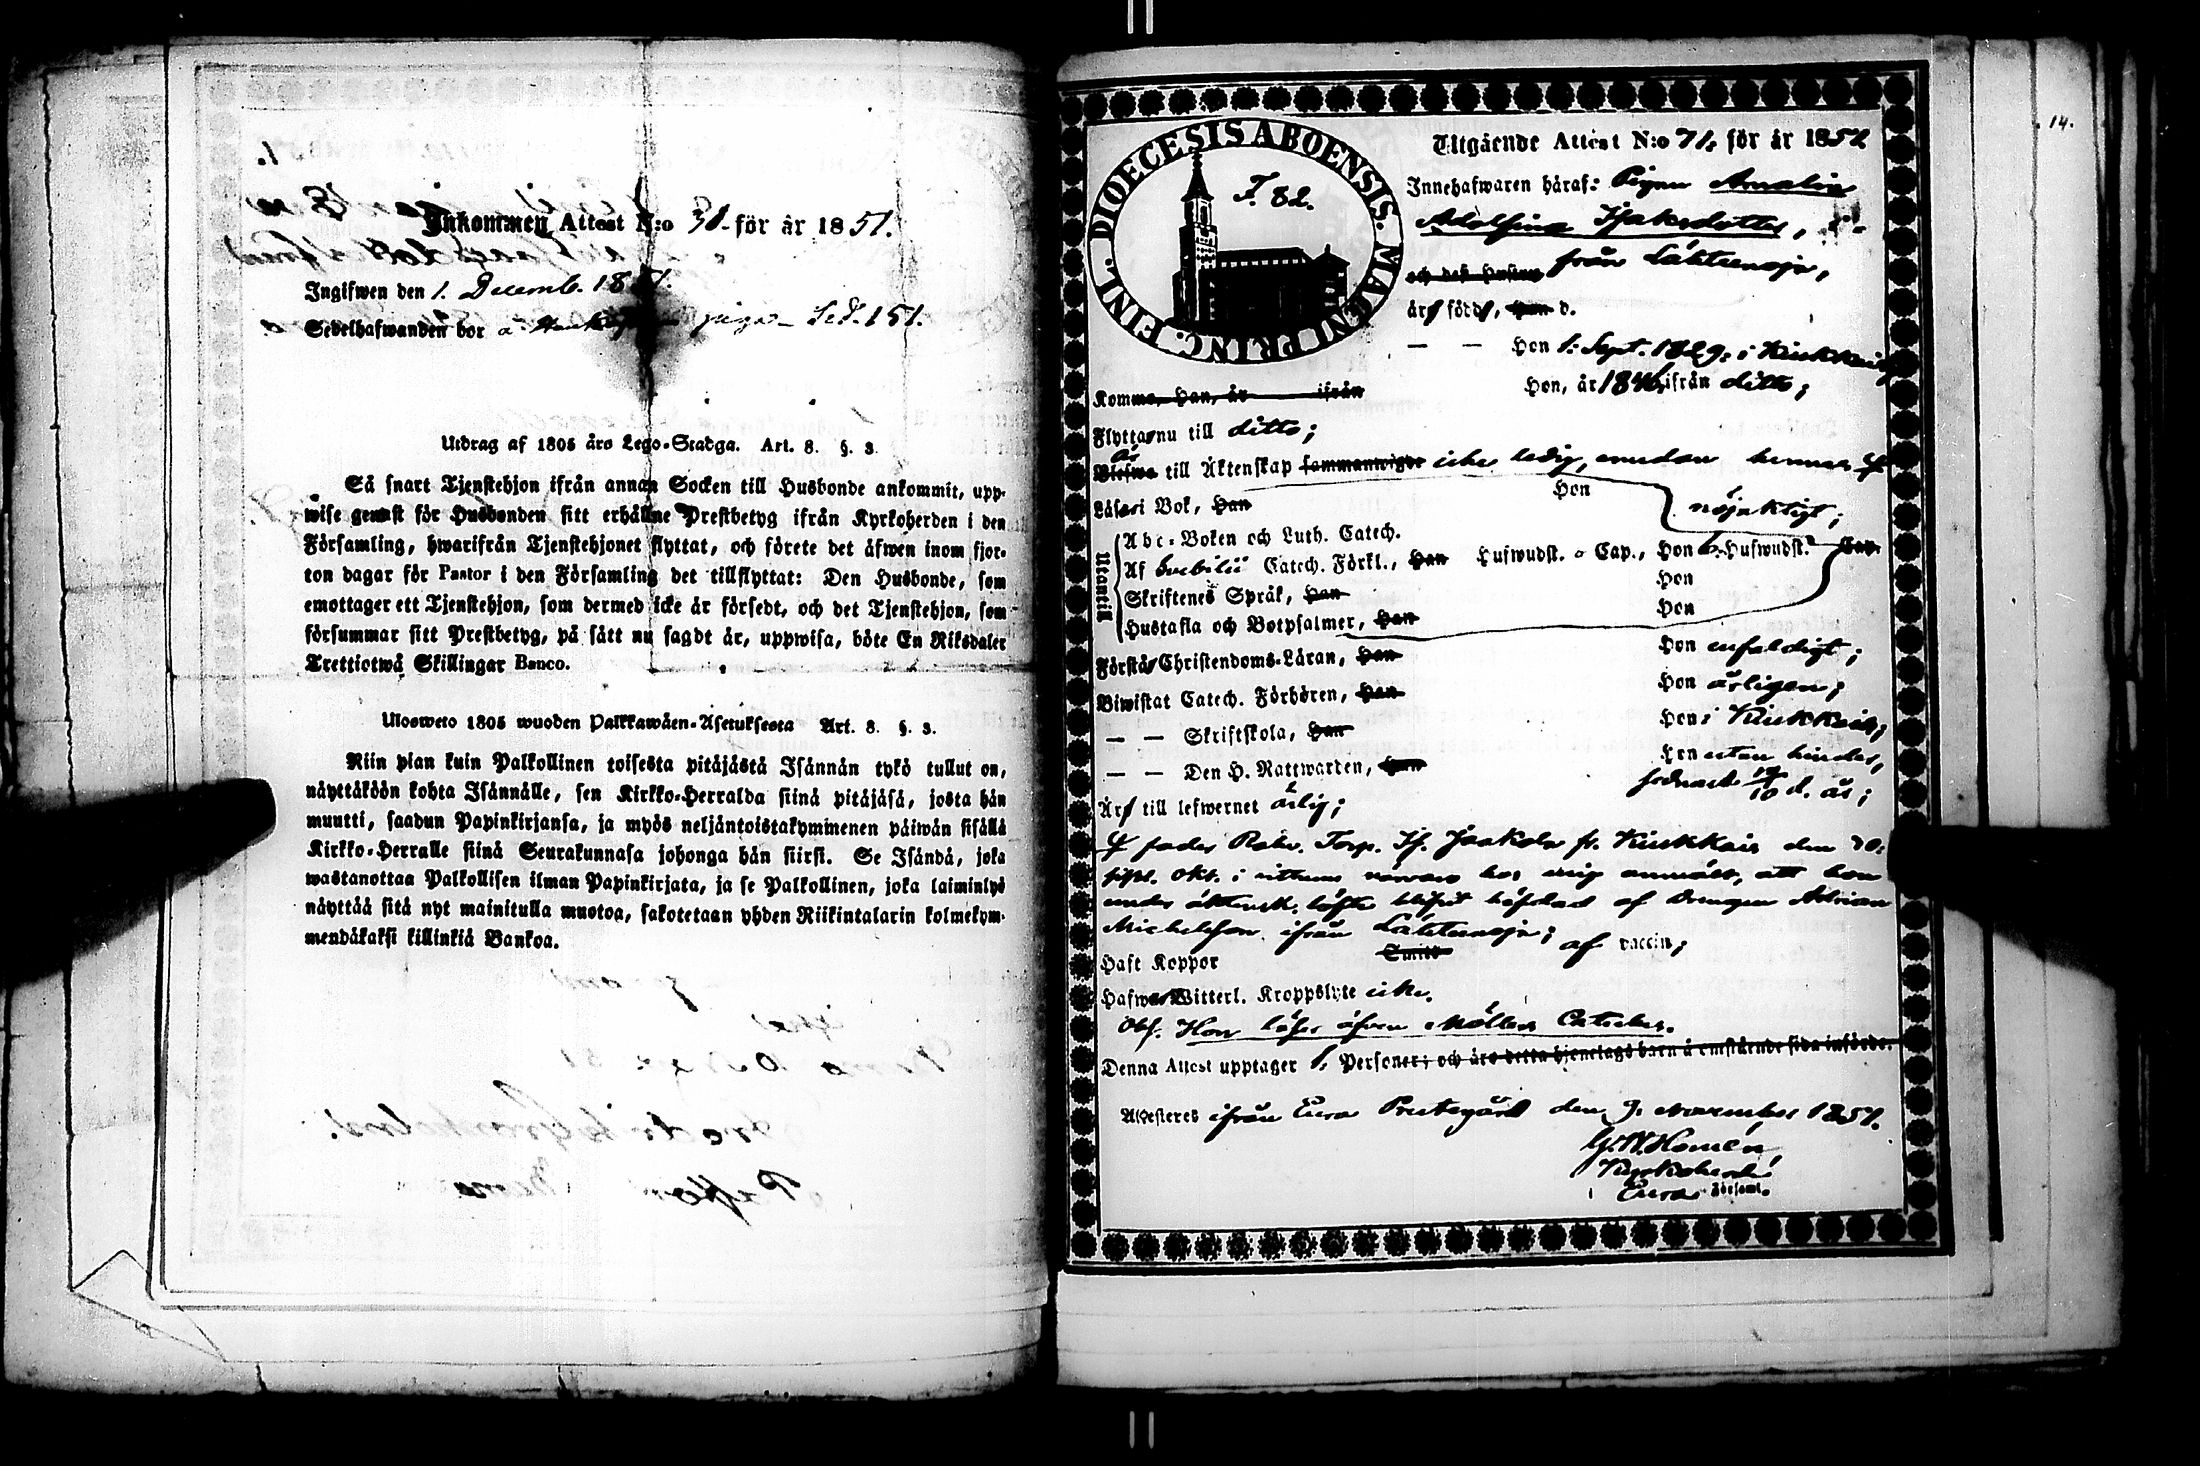 Inkommen Attest N:o 38. för år 1851.
Ingifwen den 1. Decemb. 1851.
Sedelhafwanden bor å piga Sid. 151.
Utdrag af 1805 års Lego-Stadga. Art. 8. §. 3.
Så snart Tjenstehjon ifrån annan Socken till Husbonde ankommit, upp-
wise genast för Husbonden sitt erhållne Prestbetyg ifrån Kyrkoherden i den
Församling, hwarifrån Tjenstehjonet flyttat, och förete det äfwen inom fjor-
ton dagar för Pastor i den Församling det tillflyttat: Den Husbonde, som
emottager ett Tjenstehjon, som dermed icke är försedt, och det Tjenstehjon, som
försummar sitt Prestbetyg, på sätt nu sagdt är, uppwisa, böte En Riksdaler
Trettiotwå Skillingar Banco.
Ulosweto 1805 wuoden Palkkawäen-Asetuksesta Art. 8. §. 3.
Niin pian kuin Palkollinen toisesta pitäjästä Isännän tykö tullut on,
näyttäköön kohta Isännälle, sen Kirkko-Herralda siinä pitäjäsä, josta hän
muutti, saadun Papinkirjansa, ja myös neljäntoistakymmenen päiwän sisällä
Kirkko-Herralle siinä Seurakunnasa johonga hän siirsi. Se Isändä, joka
wastanottaa Palkollisen ilman Papinkirjata, ja se Palkollinen, joka laiminlyö
näyttää sitä nyt mainitulla muotoa, sakotetaan yhden Riikintalarin kolmekym-
mendäkaksi killinkiä Bankoa.
14.
DIOECESIS ABOENSIS. MAGNI PRINC. FINL.
F. 82.
Utgående Attest N:o 71. för år 1852
Innehafwaren häraf: Pigan Amalia
Adolfina Isaksdotter,
och dess Hustru från Lähteenoja,
äro född, Han d.
— — Hon 1. Sept. 1829. i Kiukkais
Komme, Han, år ifrån Hon, år 1846, ifrån ditto;
Flyttar nu till ditto;
är
Blefwe till Äktenskap sammanwigde icke ledig, emedan hennes
Läser i Bok, Han Hon nöjaktigt;
Utantill
Abc-Boken och Luth. Catech.
Af Svebilii Catech. Förkl., Han Hufwudst. o Cap., Hon 6. Hufwudst. Cap.
Skriftenes Språk, Han Hon
Hustafla och Botpsalmer, Han Hon
Förstår Christendoms-Läran, Han Hon enfaldigt;
Biwistat Catech. Förhören, Han Hon årligen;
— — Skriftskola, Han Hon i Kiukkais;
— — Den H. Nattwarden, Han Hon utan hinder,
senast 19/10 d. år;
Är till lefwernet ärlig;
fader Torp. Is. Jaakola fr. Kiukkais den 30.
sistl. Okt. i vittnens närvaro hos mig anmält, att hon
under äktensk. löfte blifvit häfdad af Drengen Adrian
Michelsson ifrån Lähteenoja;
Haft Koppor Smitto af vaccin;
Hafwer Witterl. Kroppslyte icke.
Obs. Hon läser äfven Möllers Cateches.
Denna Attest upptager 1. Personer; och äro detta hjonelags barn å omstående sida införde.
Attesteres ifrån Eura Prestegård den 9. November 1851.
G. W. Homén,
Kyrkoherde i
Eura församl.